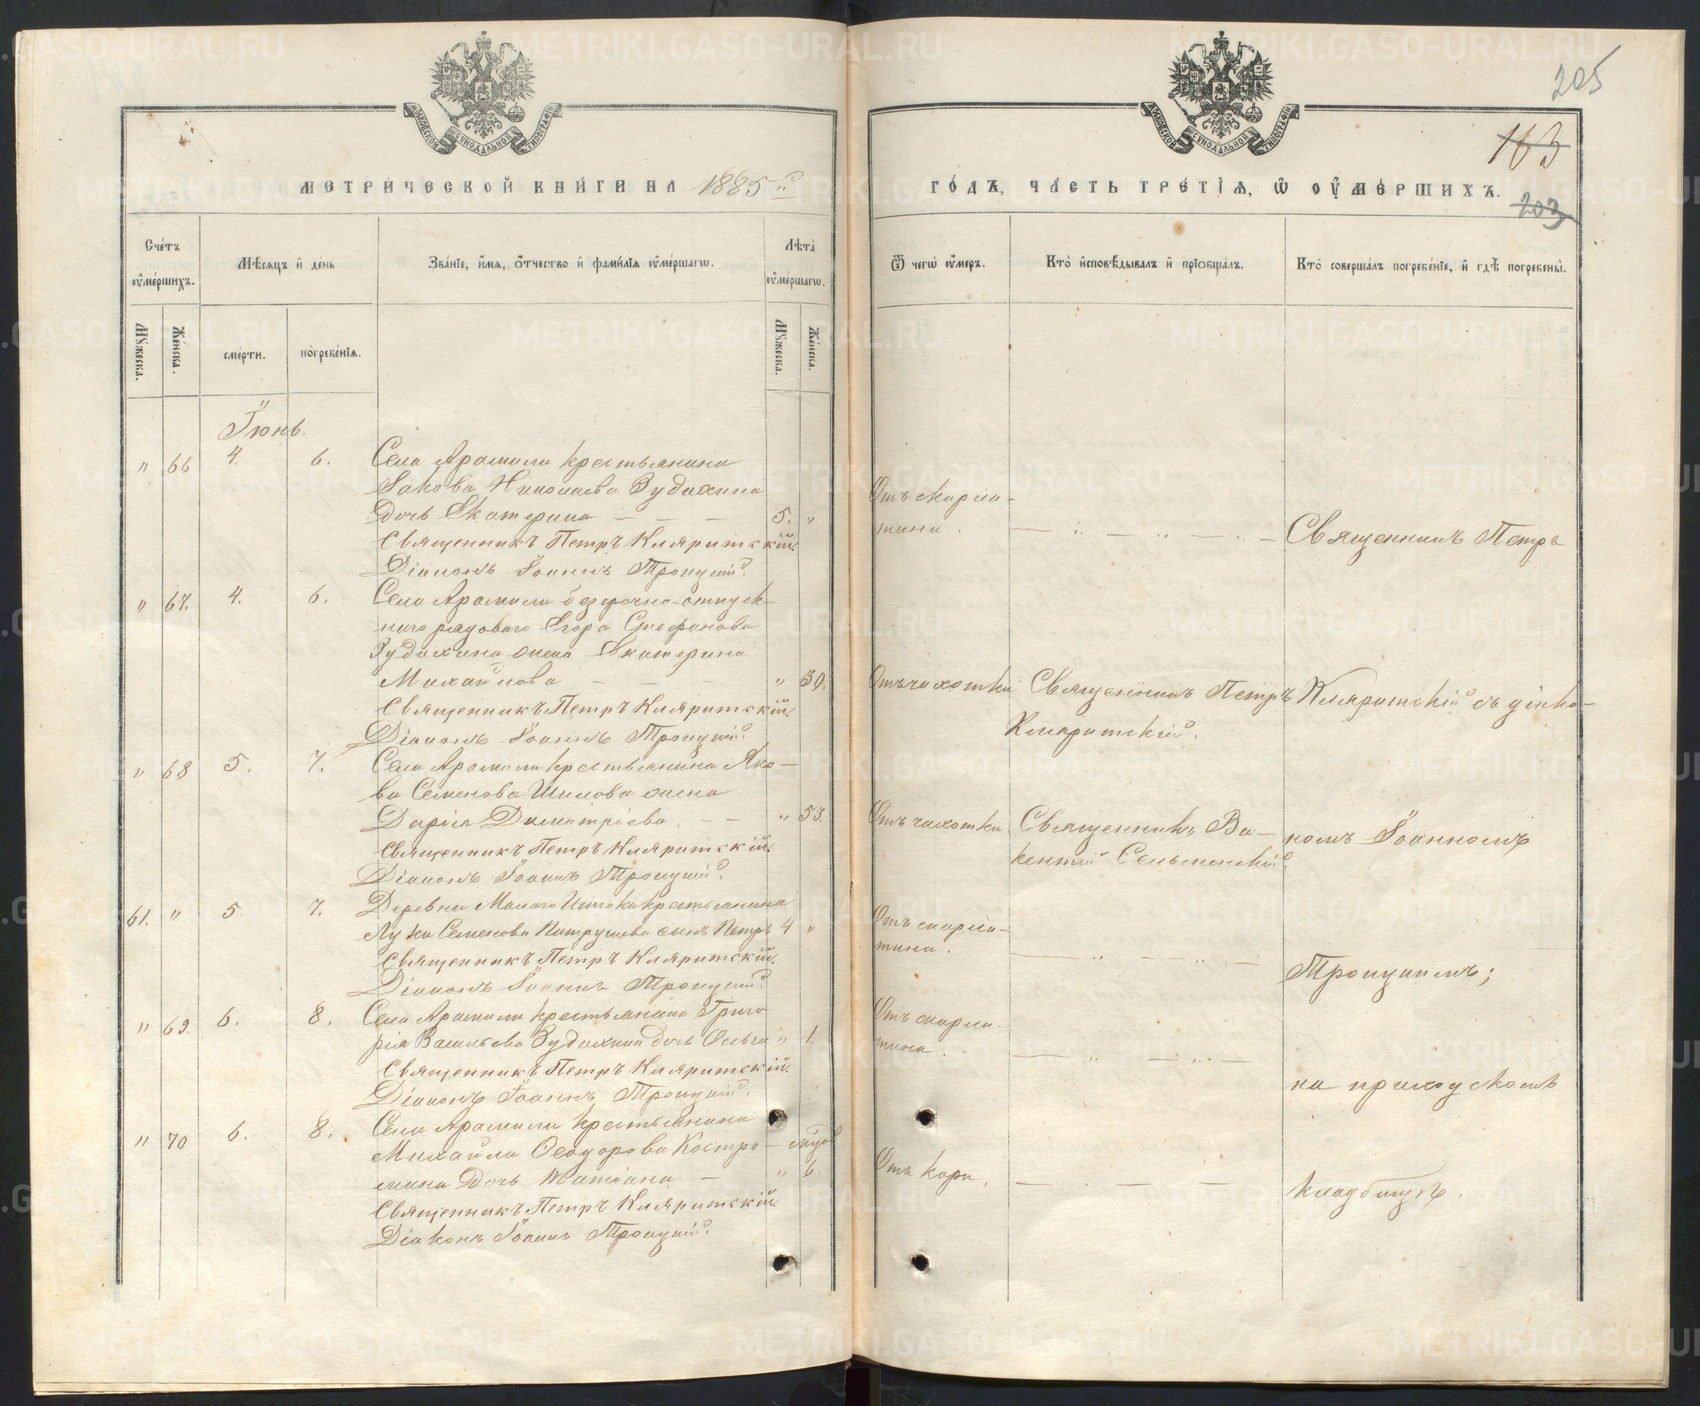 205
163
203
МЕТРИЧЕСКОЙ КНИГИ НА 1885 й
ГОДЪ, ЧАСТЬ ТРЕТІЯ, Ѽ ОУМЕРШИХЪ.
Счетъ оумершихъ.
Мѣсяцъ и день
Званіе, имя, отчество и фамилія оумершагѡ.
Лѣта оумершагѡ.
Ѿ чегѡ оумеръ.
Кто исповѣдывалъ и пріобщалъ.
Кто совершалъ погребеніе, и гдѣ погребены.
Мужеска.
Женска.
смерти.
погребенія.
Мужеска.
Женска.
Іюнь.
" 66 4. 6. Села Арамили крестьянина
Іакова Николаева Зудихина
дочь Екатерина — — — 5. "
Отъ скарла-
тины.
Священникъ Петръ
Священникъ Петръ Кляритскій.
Діаконъ Іоаннъ Троицкій.
" 67. 4. 6. Села Арамили безсрочно-отпуск-
наго рядоваго Егора Стефанова
Зудихина жена Екатерина
Михайлова — — — " 30.
Отъ чахотки
Священникъ Петръ
Кляритскій.
Кляритскій съ діако-
Священникъ Петръ Кляритскій.
Діаконъ Іоаннъ Троицкій.
" 68 5. 7. Села Арамили крестьянина Яко-
ва Семенова Шилова жена
Дарія Димитріева. — — " 53.
Отъ чахотки
Священникъ Ви-
кентій
номъ Іоанномъ
Священникъ Петръ Кляритскій.
Діаконъ Іоаннъ Троицкій.
61. " 5 7. Деревни Малаго Истока крестьянина
Луки Семенова Патрушева сынъ Петръ 4 "
Отъ скарла-
тины.
Троицкимъ;
Священникъ Петръ Кляритскій.
Діаконъ Іоаннъ Троицкій.
" 69. 6. 8. Села Арамили крестьянина Григо-
рія Васильева Зудихина дочь Ольга " 1.
Отъ скарла-
тины.
на приходскомъ
Священникъ Петръ Кляритскій.
Діаконъ Іоаннъ Троицкій.
" 70 6. 8. Села Арамили крестьянина
Михаила Ѳеодорова Костро-
мина дочь Татіана — " 6.
Отъ кори.
кладбищѣ.
Священникъ Петръ Кляритскій.
Діаконъ Іоаннъ Троицкій.
METRIKI.GASO-URAL.RU